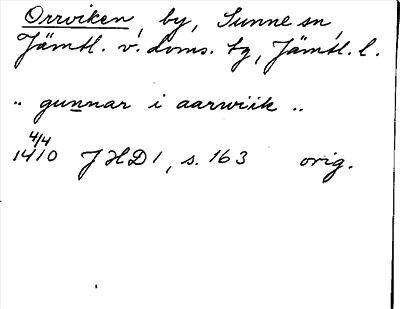 Orrviken, by, Sunne sn,
Jämtl. v. doms. tg, Jämtl. l.
.. gunnar i aarwiik ..
4/4
1410 JHD 1, s. 163 orig.